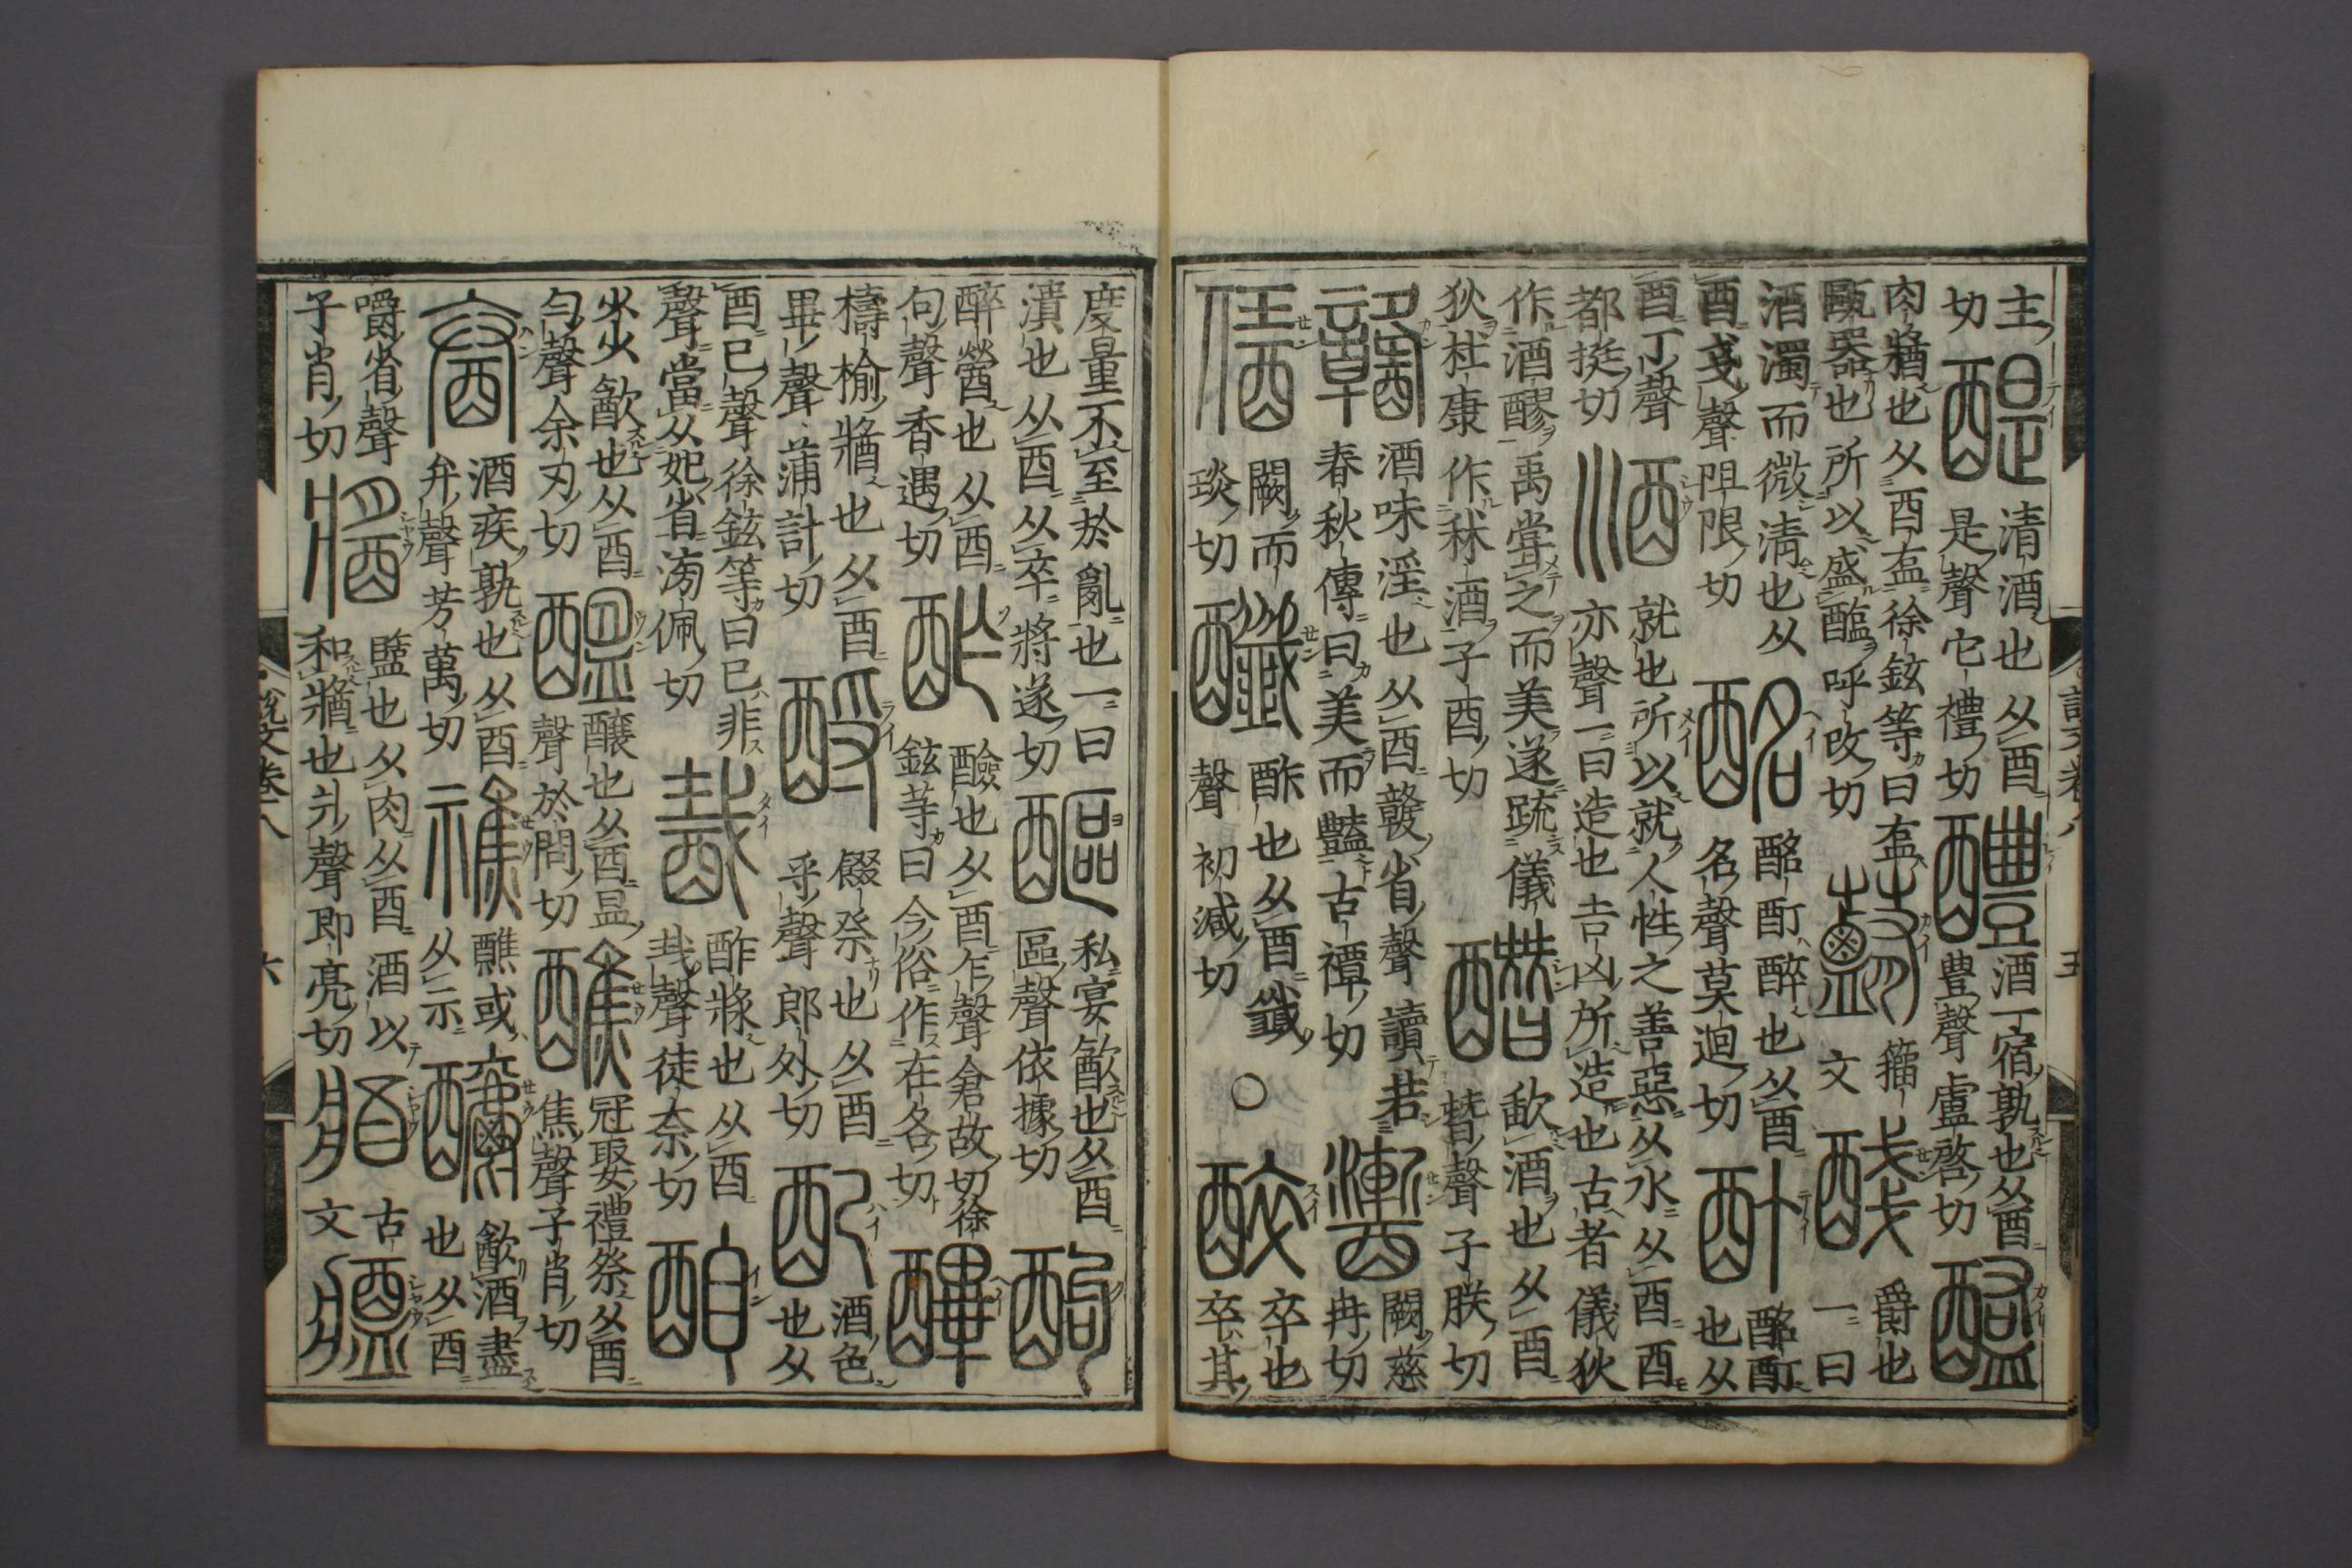 主
切
醍
清酒也从酉
是聲它禮切
醴
酒一宿孰也从酉
豊聲盧啓切
醢
肉牆也从酉𥁓徐鉉等曰𥁓
甌器也所以盛醢呼改切
籒
文
醆
爵也
一曰
酒濁而微清也从
酉戔聲阻限切
酩
酩酊醉也从酉
名聲莫迥切
酊
酩酊
也从
酉丁聲
都挺切
酒
就也所以就人性之善惡从水从酉酉
亦聲一曰造也吉凶所造也古者儀狄
作酒醪禹嘗之而美遂疏儀
狄杜康作秫酒子酉切
歃酒也从酉
朁聲子朕切
酒味淫也从酉竷省聲讀若
春秋傳曰美而豔古禫切
闕慈
冉切
闕而
琰切
酢也从酉韱
聲初減切
○
醉
卒也
卒其
度量不至於亂也一曰
潰也从酉从卒將遂切
醧
私宴㱃也从酉
區聲依據切
酗
醉醟也从酉
句聲香遇切
酢
醶也从酉乍聲倉故切徐
鉉等曰今俗作在各切
擣榆牆也从酉
畢聲蒲計切
酹
餟祭也从酉
乎聲郎外切
配
酒色
也从
酉己聲徐鉉等曰己非
聲當从妃省滂佩切
酨
酢漿也从酉
𢦏聲徒奈切
少少㱃也从酉
匀聲余刃切
醖
釀也从酉昷
聲於問切
醮
冠娶禮祭从酉
焦聲子肖切
酒疾孰也从酉
弁聲芳萬切
醮或
从示
釂
㱃酒盡
也从酉
嚼省聲
子肖切
盬也从肉从酉酒以
和牆也爿聲即亮切
古
文
說文卷八
六